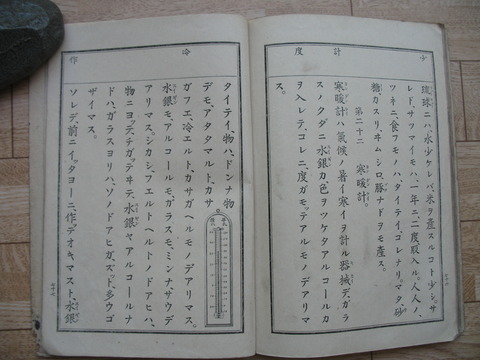 少
計
度
琉球ニハ、水少ケレバ、米ヲ産スルコト少シ。サ
レド、サツマイモハ、一年ニ、二度取入ル。人人ノ、
ツネニ、食フモノハ、タイテイ、コレナリ。マタ、砂
糖ガスリキムシロ、豚ナドヲモ産ス。
第二十二 寒暖計。
寒暖計ハ、氣候ノ、暑イ寒イヲ計ル器械デ、ガラ
スノクダニ、水銀カ、色ヲツケタアルコールカ
ヲ入レテ、コレニ、度ガモッテアルモノデアリマ
ス。
冷
作
タイテイ、物ハ、ドンナ物
デモ、アタタマルト、カサ
ガフエ、冷エルト、カサガヘルモノデアリマス。
水銀モ、アルコールモ、ガラスモ、ミンナ、サウデ
アリマス。シカシ、フエルト、ヘルトノドアヒハ、
物ニヨッテ、チガヒデキテ、水銀ヤアルコールナ
ドハ、ガラスヨリハ、ソノドアヒガ、ズット、多ウゴ
ザイマス。
ソレデ、前ニイッタヨーニ、作デオキマスト、水銀